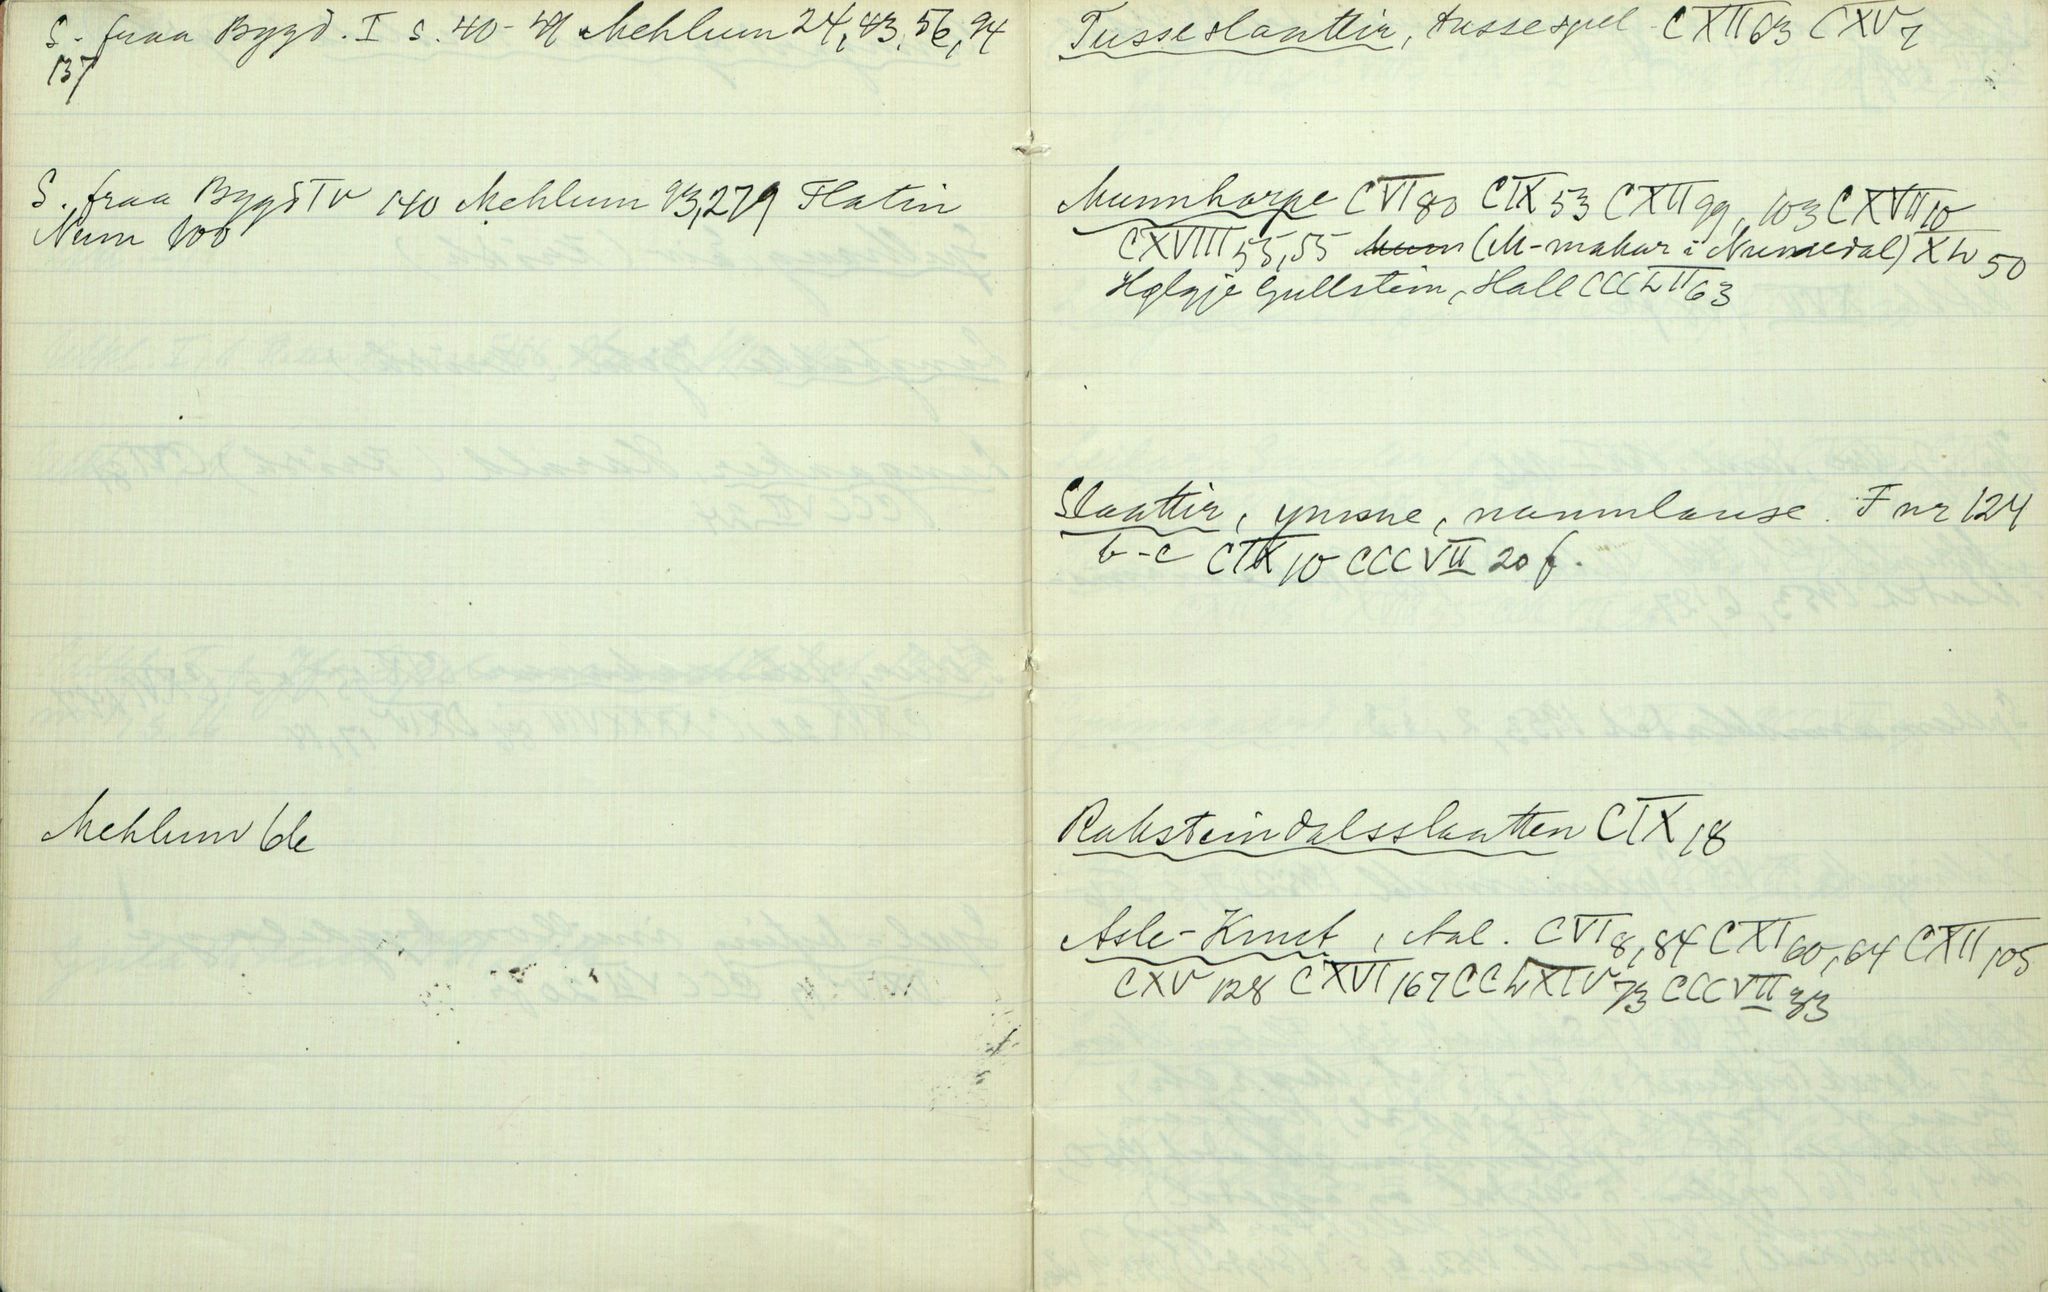 S. fraa Bygd. I s. 40-41 Mehlum 24, 43, 56, 94
137
S. fraa Bygd IV 140 Mehlum 93,279 Flatin
Num 100
Mehlum 61c
Tusseslaattir, tussespel CXII 63 CXV 7
Munnharpe CVI 80 CIX 53 CXII 99, 103 CXVII 10
CXVIII 55, 55 (M-makar i Numedal) XL 50
Hølgje Gullstein, Hall CCCLII 63
Slaattir, ymsne, namnlause. F nr 124
b-c CIX 10 CCCVII 20 f.
Raksteindalsslaatten CIX 18
Asle-Knut, Aal. CVI 8, 84 CXI 60, 64 CXII 105
CXV 128 CXVI 167 CCLXIV 73 CCCVII 33